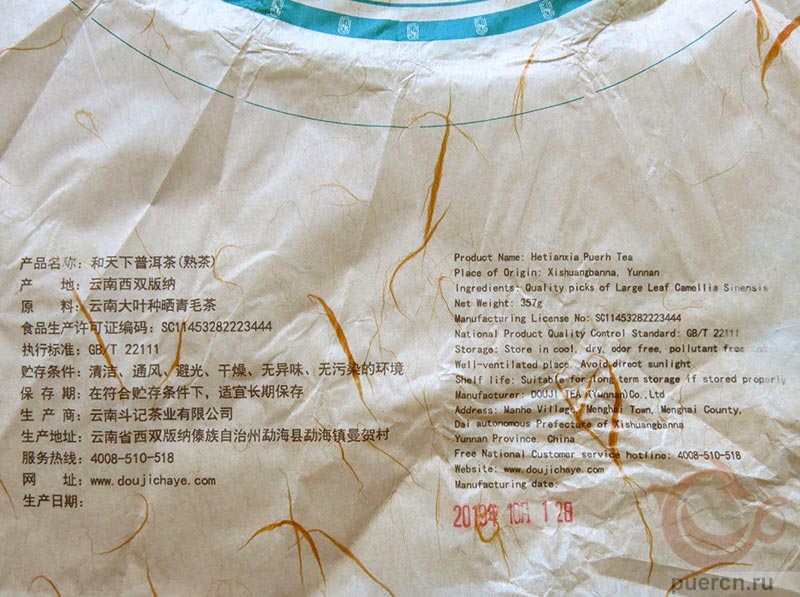 产品名称：和天下普洱茶(熟茶)
产 地：云南西双版纳
原 料：云南大叶种晒青毛茶
食品生产许可证编码：SC11453282223444
执行标准：GB/T 22111
贮存条件：清洁、通风、避光、干燥、无异味、无污染的环境
保 存 期：在符合贮存条件下，适宜长期保存
生 产 商：云南斗记茶业有限公司
生产地址：云南省西双版纳傣族自治州勐海县勐海镇曼贺村
服务热线：4008-510-518
网 址：www.doujichaye.com
生产日期：
Product Name: Hetianxia Puerh Tea
Place of Origin: Xishuangbanna, Yunnan
Ingredients: Quality picks of Large Leaf Camellia Sinensis
Net Weight: 357g
Manufacturing License No: SC11453282223444
National Product Quality Control Standard: GB/T 22111
Storage: Store in cool, dry, odor free, pollutant free
Well-ventilated place. Avoid direct sunlight
Shelf life: Suitable for long term storage if stored properly
Manufacturer: DOUJI TEA (Yunnan)Co.,Ltd
Address: Manhe Village, Menghai Town, Menghai County,
Dai autonomous Prefecture of Xishuangbanna
Yunnan Province, China
Free National Customer service hotline: 4008-510-518
Website: www.doujichaye.com
Manufacturing date:
2019年 10月 1 2日
puercn.ru